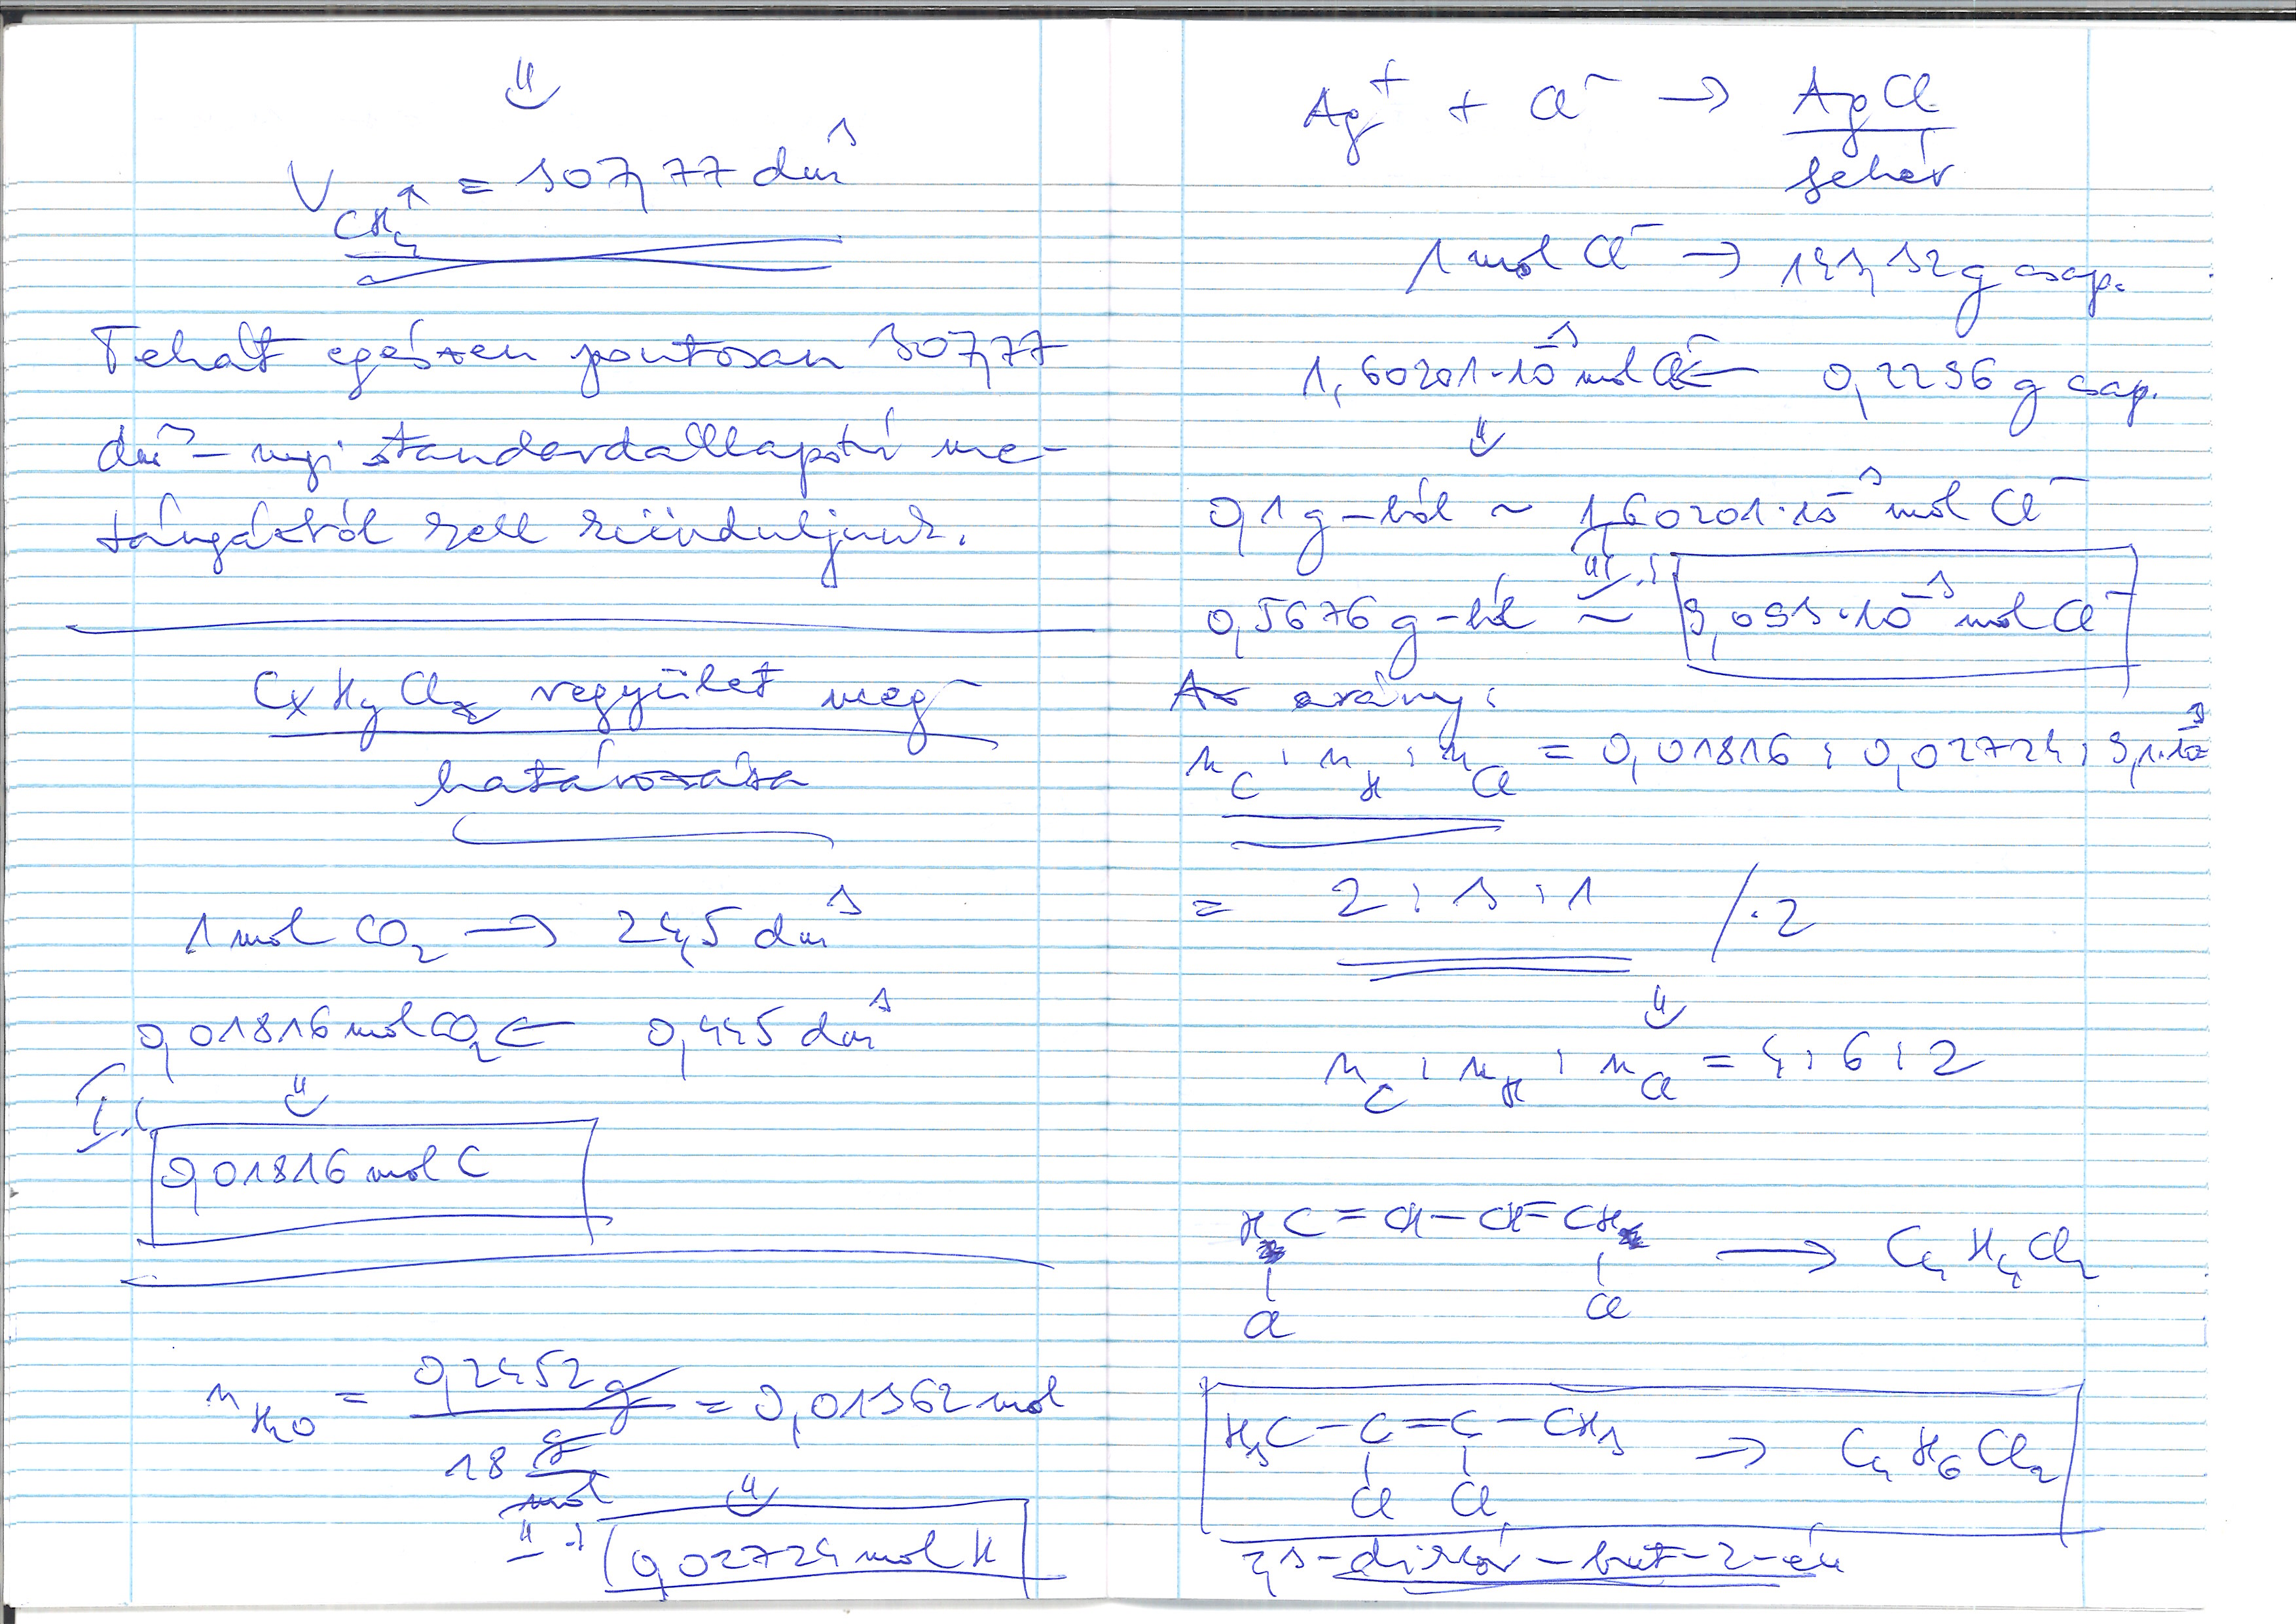 ⇓
V CH₄↑ = 307,77 dm³
Tehát egészen pontosan 307,77
dm³-nyi standardállapotú me-
tángázból kell kiinduljunk.
CxHyClz vegyület meg-
határozása
1 mol CO₂ → 24,5 dm³
0,01816 mol CO₂ ← 0,445 dm³
⇓
I.
0,01816 mol C
n H₂O = 0,2452 g / 18 g/mol = 0,01362 mol
⇓
II. 0,02724 mol H
Ag⁺ + Cl⁻ → AgCl
fehér
1 mol Cl⁻ → 143,32 g csap.
1,60201·10⁻³ mol Cl⁻ ← 0,2296 g csap.
⇓
0,1 g-ból ~ 1,60201·10⁻³ mol Cl⁻
⇓
0,5676 g-ból ~ III. 9,093·10⁻³ mol Cl⁻
Az arány:
n C : n H : n Cl = 0,01816 : 0,02724 : 9,1·10⁻³
= 2 : 3 : 1 /·2
⇓
n C : n H : n Cl = 4 : 6 : 2
HC = CH – CH = CH → C₄H₄Cl₂
Cl Cl
H₃C – C = C – CH₃ → C₄H₆Cl₂
Cl Cl
2,3-diklór-but-2-én